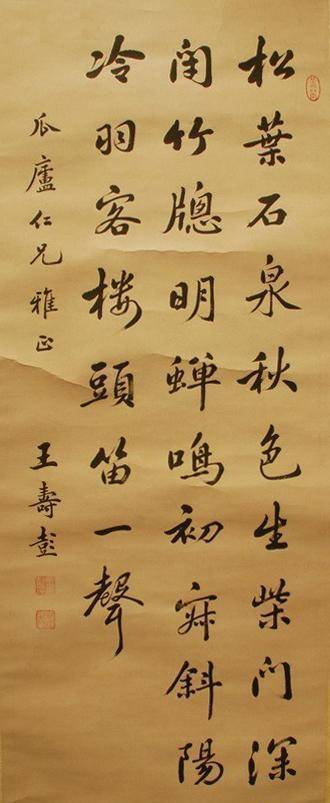 松葉石泉秋色生柴门深
闭竹牕明蝉鳴初寂斜陽
冷羽客楼頭笛一聲
瓜廬仁兄雅正
王壽彭